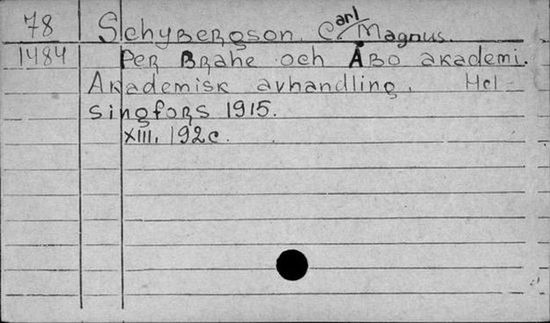 78 Schybergson, Carl Magnus.
1484 Per Brahe och Åbo akademi.
Akademisk avhandling. Hel-
singfors 1915.
XIII, 192 c.